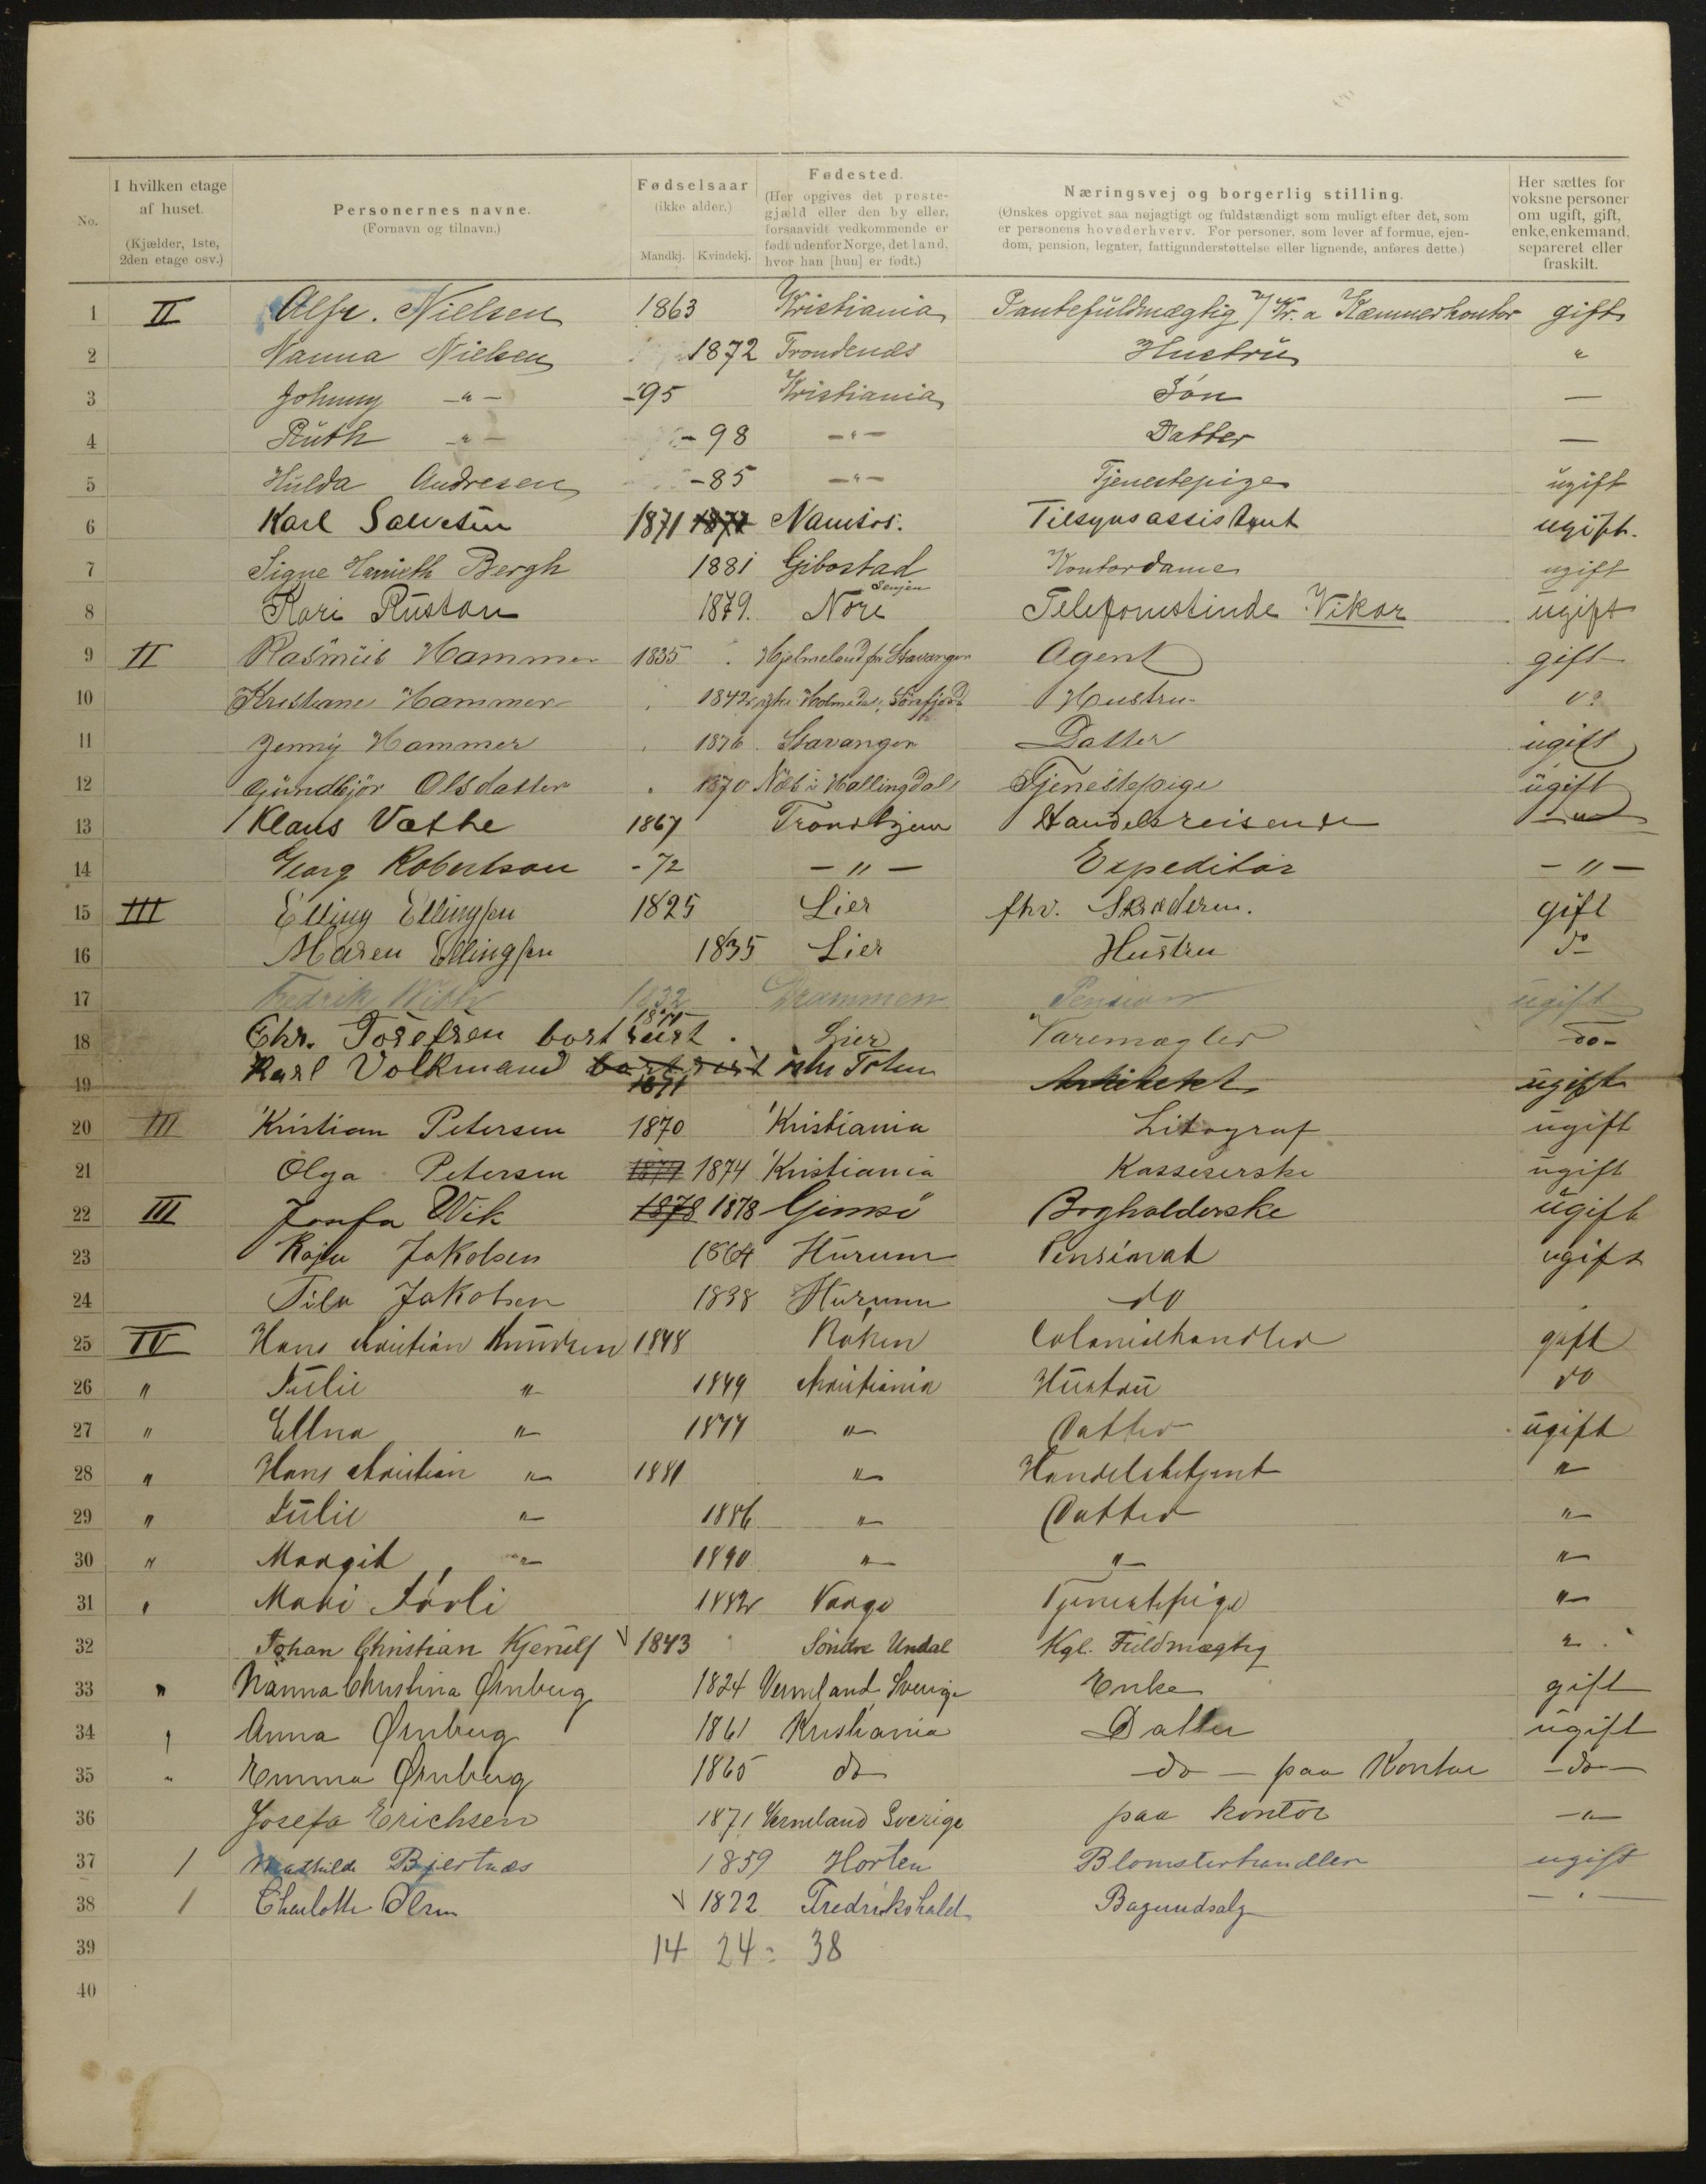 No. | I hvilken etage af huset. (Kjælder, 1ste, 2den etage osv.) | Personernes navne. (Fornavn og tilnavn.) | Fødselsaar (ikke alder.) Mandkj. Kvindekj. | Fødested. (Her opgives det prestegjæld eller den by eller, forsaavidt vedkommende er født udenfor Norge, det land, hvor han [hun] er født.) | Næringsvej og borgerlig stilling. (Ønskes opgivet saa nøjagtigt og fuldstændigt som muligt efter det, som er personens hovederhverv. For personer, som lever af formue, ejendom, pension, legater, fattigunderstøttelse eller lignende, anføres dette.) | Her sættes for voksne personer om ugift, gift, enke, enkemand, separeret eller fraskilt.
1 II Alfr. Nielsen 1863 Kristiania Pantefuldmægtig v/ Kr.a Kæmnerkontor gift
2 Nanna Nielsen 1872 Trondenæs Hustru "
3 Johnny -"- -95 Kristiania Søn —
4 Ruth -"- -98 -"- Datter —
5 Hulda Andresen -85 -"- Tjenestepige ugift
6 Karl Salvesen 1871 1871 Namsos. Tilsynsassistent ugift.
7 Signe Bergh 1881 Gibostad Senjen Kontordame ugift
8 Kari Rustan 1879. Nore Telefonistinde Vikar ugift
9 II Rasmus Hammer 1835 Hjelmeland for Stavanger Agent gift
10 Kristiane Hammer 1842 Søndfjord Hustru do
11 Jenny Hammer 1876 Stavanger Datter ugift
12 Gundbjör Olsdatter 1870 Næs i Hallingdal Tjenestepige ugift
13 Klaus Vathe 1867 Trondhjem Handelsreisende -"-
14 Georg Robertson -72 -"- Expeditør -"-
15 III Elling Ellingsen 1825 Lier fhv. Skræderm. gift
16 Maren Ellingsen 1835 Lier Hustru do
17 Fredrik With 1832 Drammen Pension ugift
18 Chr. Tosefsen bortreist 1877 Lier Varemægler do-
19 Karl Volkmand bortreist 1871 Toten Arkitekt ugift
20 III Kristian Petersen 1870 Kristiania Litograf ugift
21 Olga Petersen 1874 1874 Kristiania Kassererske ugift
22 III Josefa Wik 1878 1878 Gimsö Bogholderske ugift
23 Kaja Jakobsen 1864 Hurum Pensionat ugift
24 Jakobsen 1838 Hurum do
25 IV Hans Christian Knudsen 1848 Røken Colonialhandler gift
26 " Julie " 1849 Christiania Hustru do
27 " Ellna " 1877 " Datter ugift
28 " Hans Christian " 1881 " Handelsbetjent "
29 " Julie " 1886 " Datter "
30 " Margit " 1890 " " "
31 " Mari Sørli 1882 Vaage Tjenestepige "
32 Johan Christian Kjerulf 1843 Søndre Undal Kgl. Fuldmægtig "
33 " Nanna Christina Ørnberg 1824 Vermland Sverige Enke gift
34 " Anna Ørnberg 1861 Kristiania Datter ugift
35 " Emma Ørnberg 1865 do do — paa Kontor -do-
36 Josefa Erichsen 1871 Vermland Sverige paa kontor -"-
37 / Mathilde Bjertnæs 1859 Horten Blomsterhandler ugift
38 / Charlotte Olsen 1822 Fredrikshald -"-
39 14 24 = 38
40